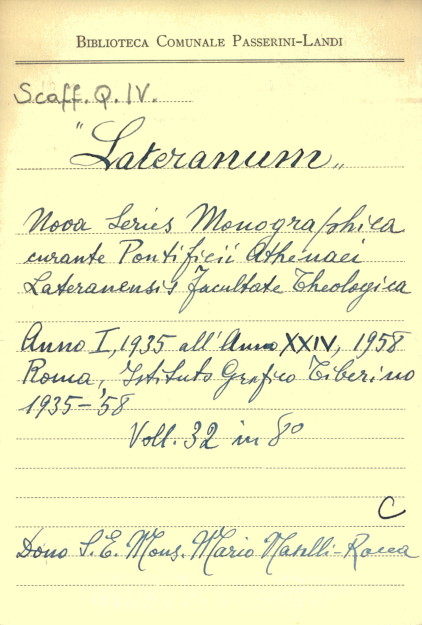 BIBLIOTECA COMUNALE PASSERINI-LANDI
Scaff. Q. IV.
"Lateranum"
Nova Series Monographica
curante Pontificii Athenaei
Lateranensis Facultate Theologica
Anno I, 1935 all'Anno XXIV, 1958
Roma, Istituto Grafico Tiberino
1935-'58
Voll. 32 in 8º
C
Dono S. E. Mons. Mario Nasalli-Rocca